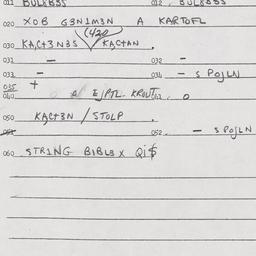 011 BULBBSS 012. BULBBSS
020 XOB G3N1M3N A KARTOFL
(420
030 KACT3N3S / KACTAN .
031 - 032 -
033 - 034 - S POJLN
035 +
040 EJPTL. KROUT 041. O
050 KACT3N / STOLP
052. - S POJLN
060 STR1NG BIBL3X Qi$